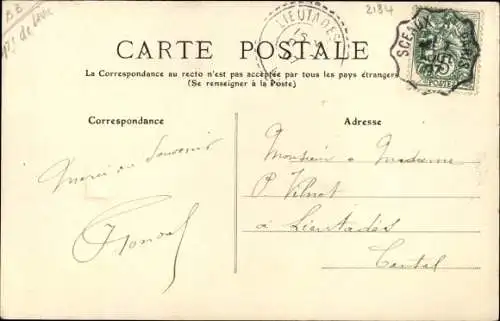 BB
2184
LIEUTADÈS
SCEAUX
5
POSTES
CARTE POSTALE
La Correspondance au recto n'est pas acceptée par tous les pays étrangers
(Se renseigner à la Poste)
Correspondance
Adresse
Merci au Souvenir
Monsieur & Madame
P. Vilnot
à Lieutadès
Cantal